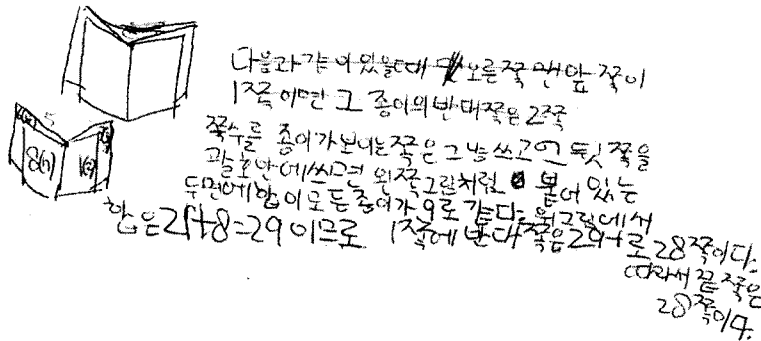 다음과 같이 있을때 오른쪽 맨앞 쪽이
1쪽이면 그 종이의 반대쪽은 2쪽
쪽수를 종이가 보이는 쪽은 그냥 쓰고 뒷 쪽을
괄호안에 쓰면 왼쪽그림처럼 붙어 있는
두면에 합이 모든종이가 9로 같다. 윗그림에서
합은 21+8=29 이므로 1쪽에 반대쪽은 29-1로 28쪽이다.
따라서 끝쪽은
28쪽이다.
5
8(7)
1(2)